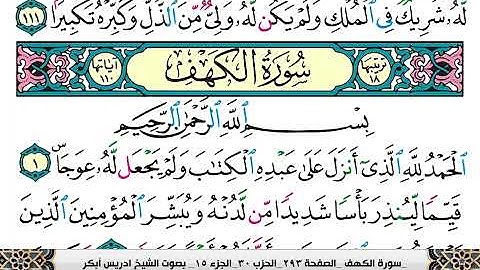 لَّهُۥ شَرِيكٌ فِى ٱلْمُلْكِ وَلَمْ يَكُن لَّهُۥ وَلِىٌّ مِّنَ ٱلذُّلِّ وَكَبِّرْهُ تَكْبِيرًۢا ١١١
ترتيبها ١٨ سُورَةُ الكَهْفِ آياتها ١١٠
بِسْمِ ٱللَّهِ ٱلرَّحْمَٰنِ ٱلرَّحِيمِ
ٱلْحَمْدُ لِلَّهِ ٱلَّذِىٓ أَنزَلَ عَلَىٰ عَبْدِهِ ٱلْكِتَٰبَ وَلَمْ يَجْعَل لَّهُۥ عِوَجَاۜ ١
قَيِّمًا لِّيُنذِرَ بَأْسًا شَدِيدًا مِّن لَّدُنْهُ وَيُبَشِّرَ ٱلْمُؤْمِنِينَ ٱلَّذِينَ
سورة الكهف _الصفحة ٢٩٣_الحزب ٣٠_الجزء ١٥_ بصوت الشيخ ادريس أبكر